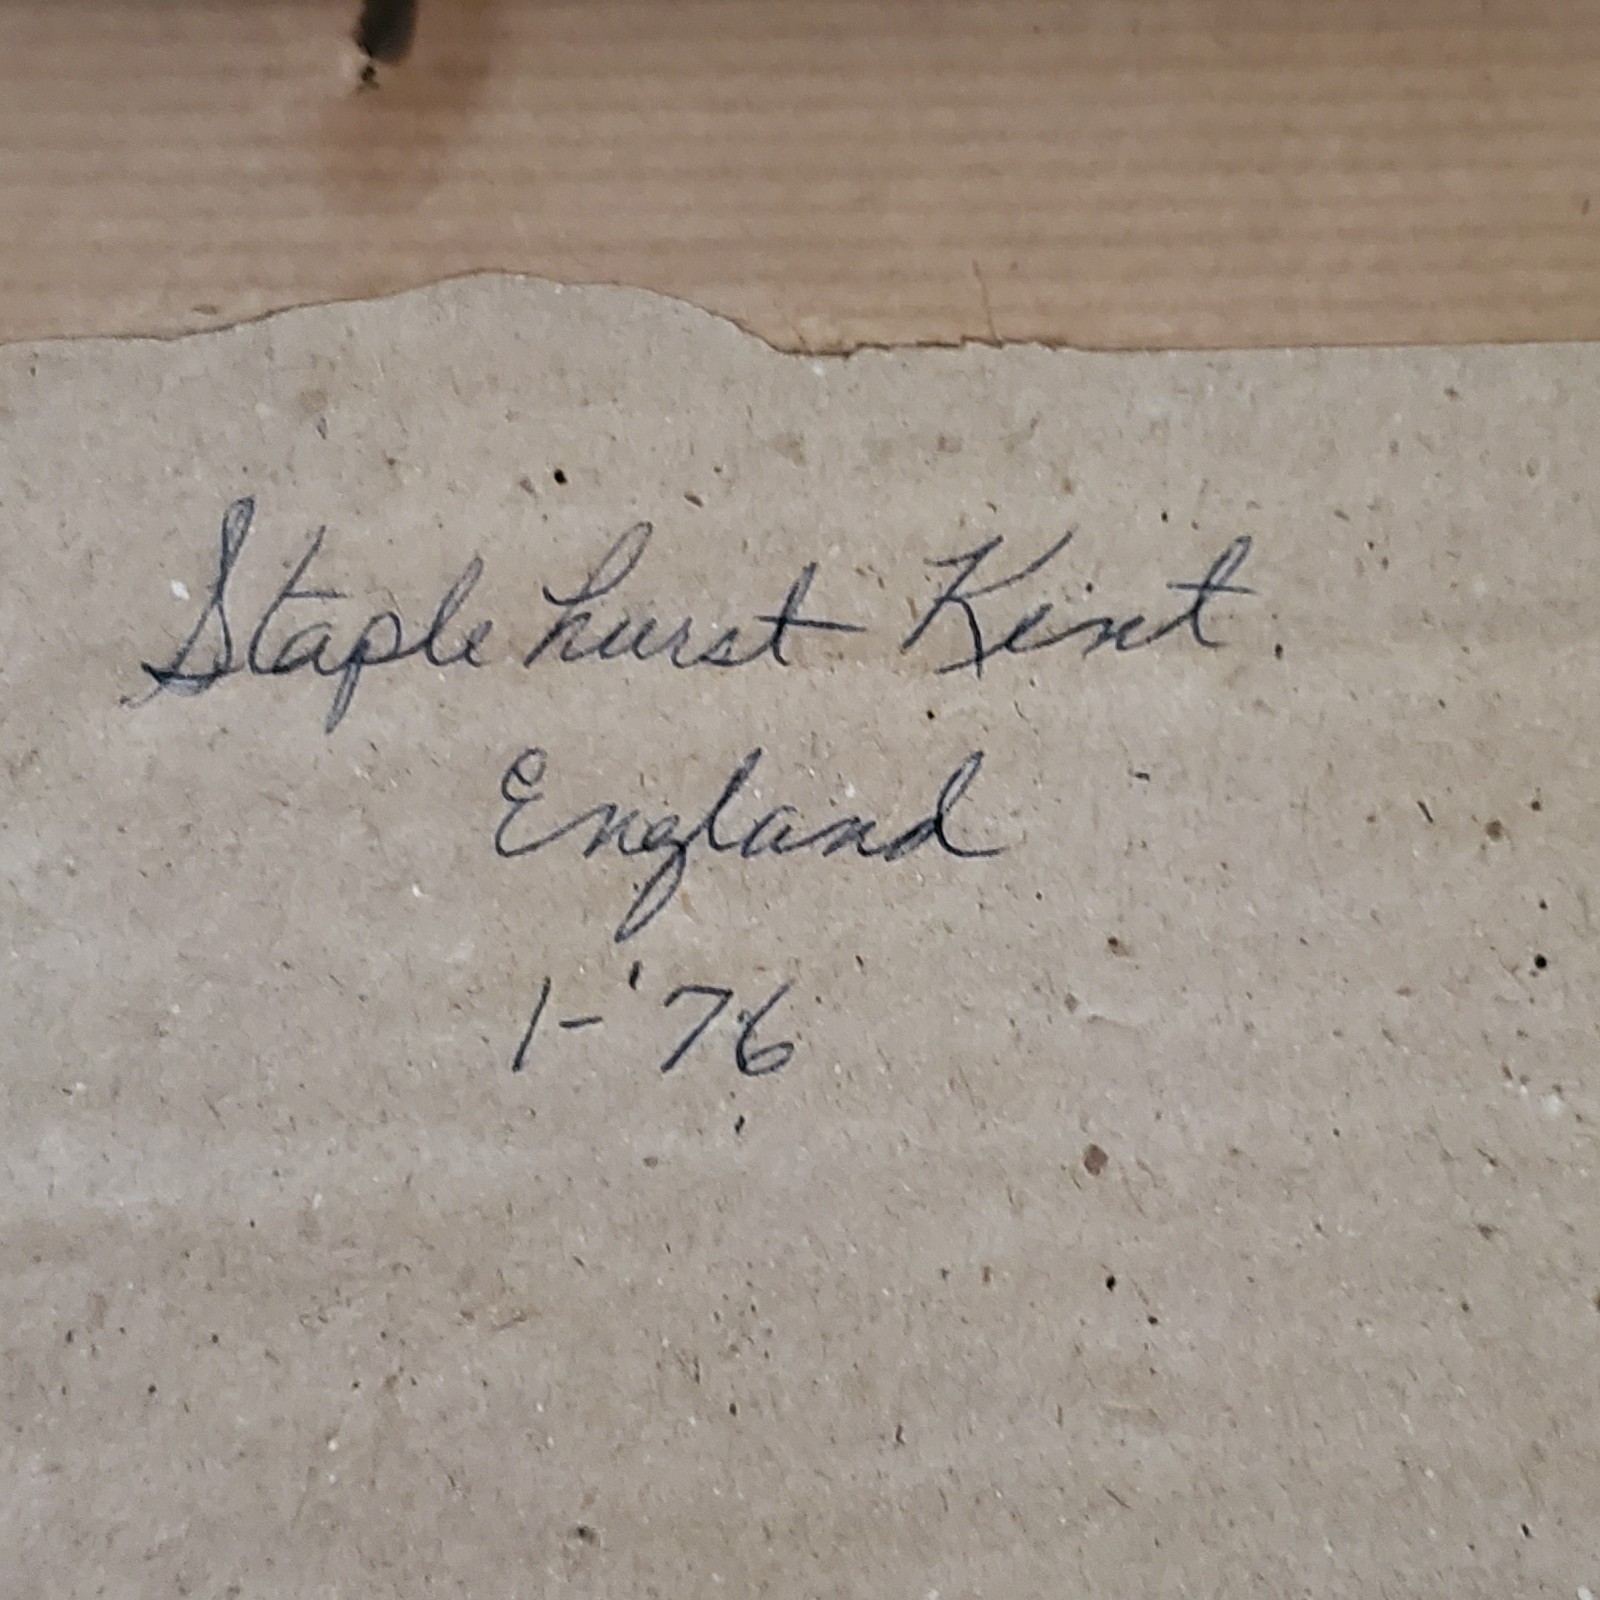 Staplehurst Kent.
England
1-'76